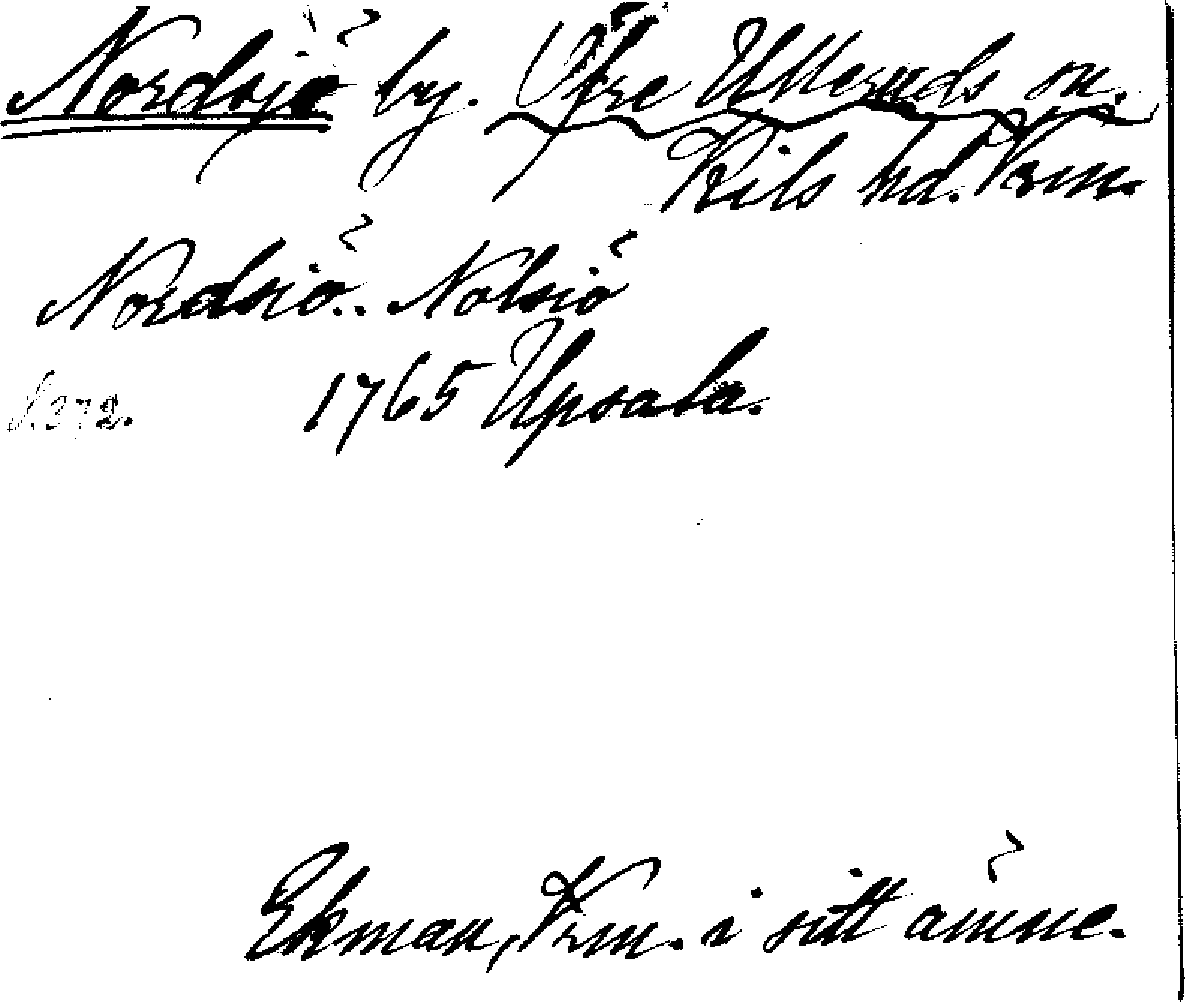 Nordsjö by. Öfre Ulleruds sn.
Kils hd. Vrm.
Nordsiö.. Nolsiö
S. 372. 1765 Upsala.
Ekman, Vrm. i sitt ämne.